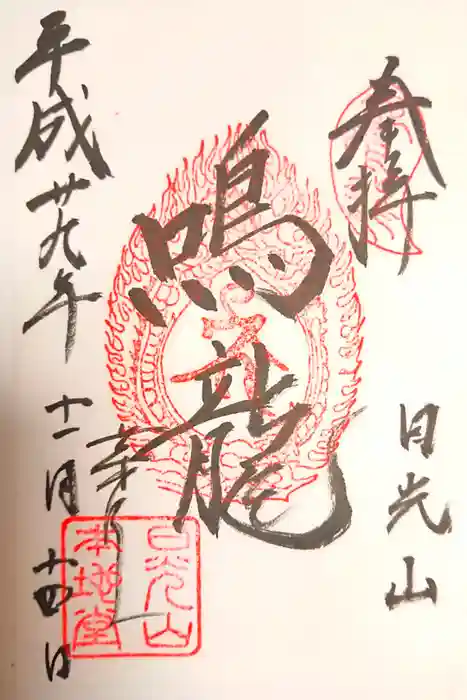 奉拝
日光山
鳴龍
平成廿九年
十一月十四日
日光山
本地堂